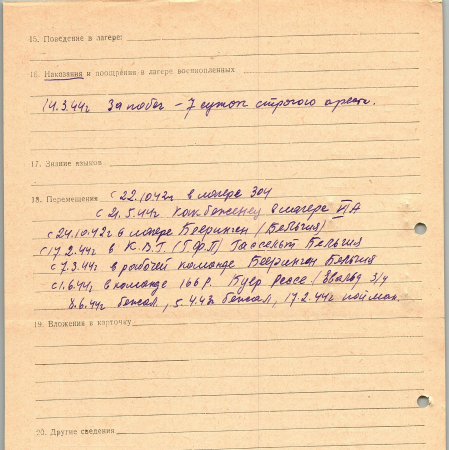 15. Поведение в лагере:
16. Наказания и поощрения в лагере военнопленных
14.3.44г За побег – 7 суток строгого ареста.
17. Знание языков
18. Перемещения с 22.10.42г в лагере 304
с 21.5.44г как беженец в лагере VI А
с 24.10.42г в лагере Бееринген (Бельгия)
с 17.2.44г в К.В.Г. (ГФП) Гассельт Бельгия
с 7.3.44г в рабочей команде Бееринген Бельгия
с 1.6.44г в команде 166 Р.
8.6.44г бежал, 5.4.43г бежал, 17.2.44г пойман.
19. Вложения в карточку
20. Другие сведения